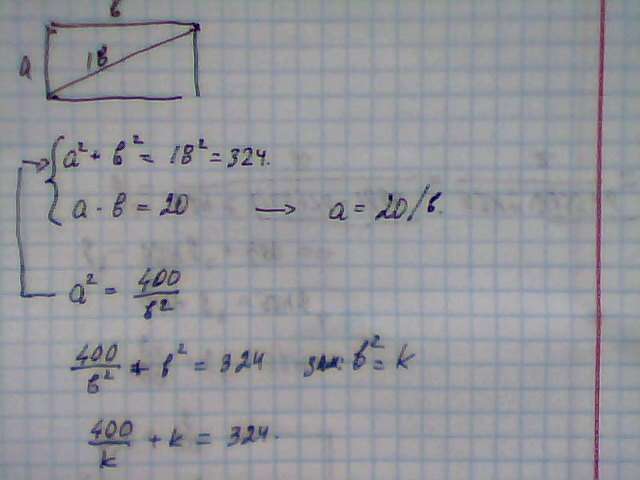 в
a 18
a² + в² = 18² = 324.
a · в = 20 → a = 20/в.
a² = 400/в²
400/в² + в² = 324 зам: в² = k
400/k + k = 324.